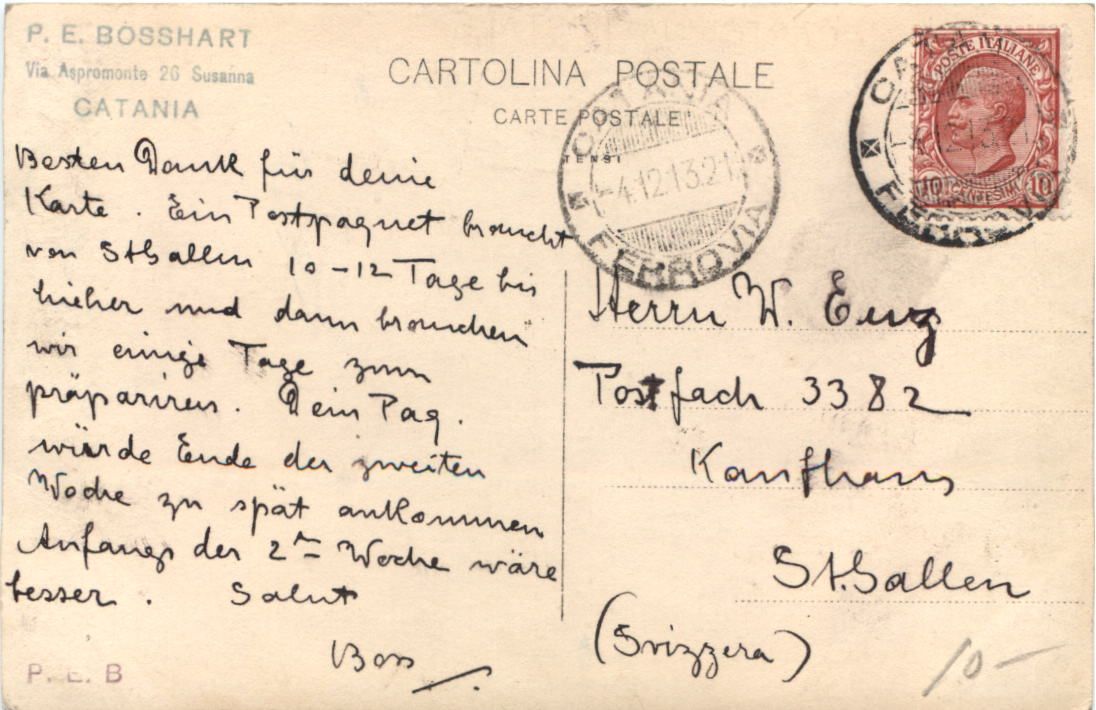 P. E. BOSSHART
Via Aspromonte 26 Susanna
CATANIA
CARTOLINA POSTALE
CARTE POSTALE
TENSI
CATANIA
-4.12.13.21
FERROVIA
POSTE ITALIANE
10
FERROVIA
Besten Dank für deine
Karte. Ein Postpaquet braucht
von St Gallen 10-12 Tage bis
hieher und dann brauchen
wir einige Tage zum
präpariren. Dein Paq.
würde Ende der zweiten
Woche zu spät ankommen
Anfangs der 2ten Woche wäre
besser. Salut
Boss
P. E. B
Herrn W. Enz
Postfach 3382
Kaufhaus
St. Gallen
(Svizzera)
10-